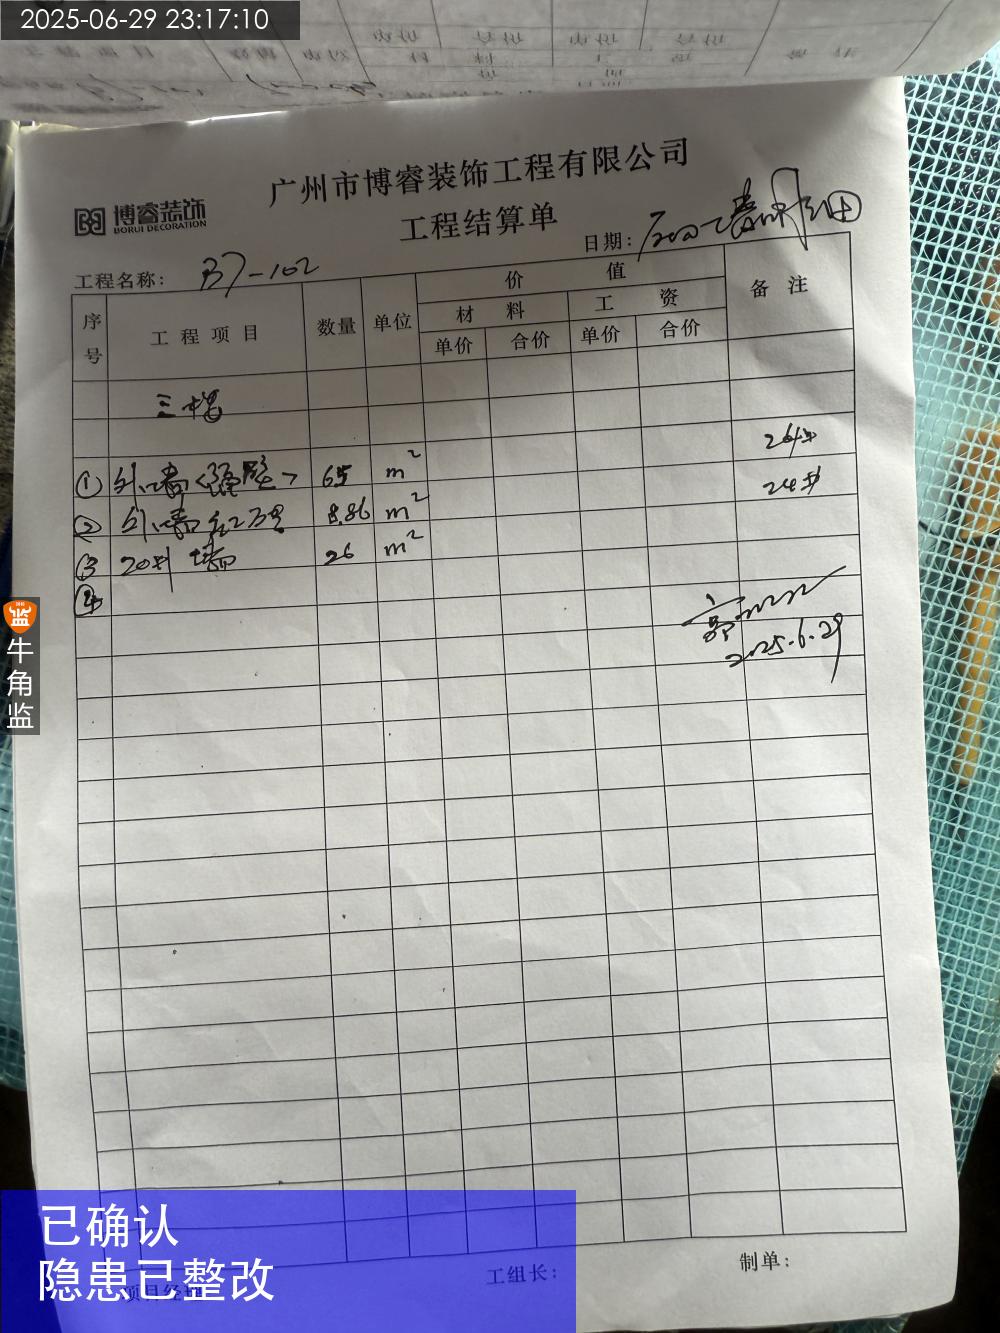 2025-06-29 23:17:10
广州市博睿装饰工程有限公司
博睿装饰
BORUI DECORATION
工程结算单
工程名称: B7-102
日期:
序号 工程项目 数量 单位 价值 备注
材料 工资
单价 合价 单价 合价
三楼
① 外墙 65 m² 26#
② 外墙 8.86 m² 24#
③ 20# 墙 26 m²
④
2025.6.29
牛角监
已确认
隐患已整改
项目经理
工组长:
制单: